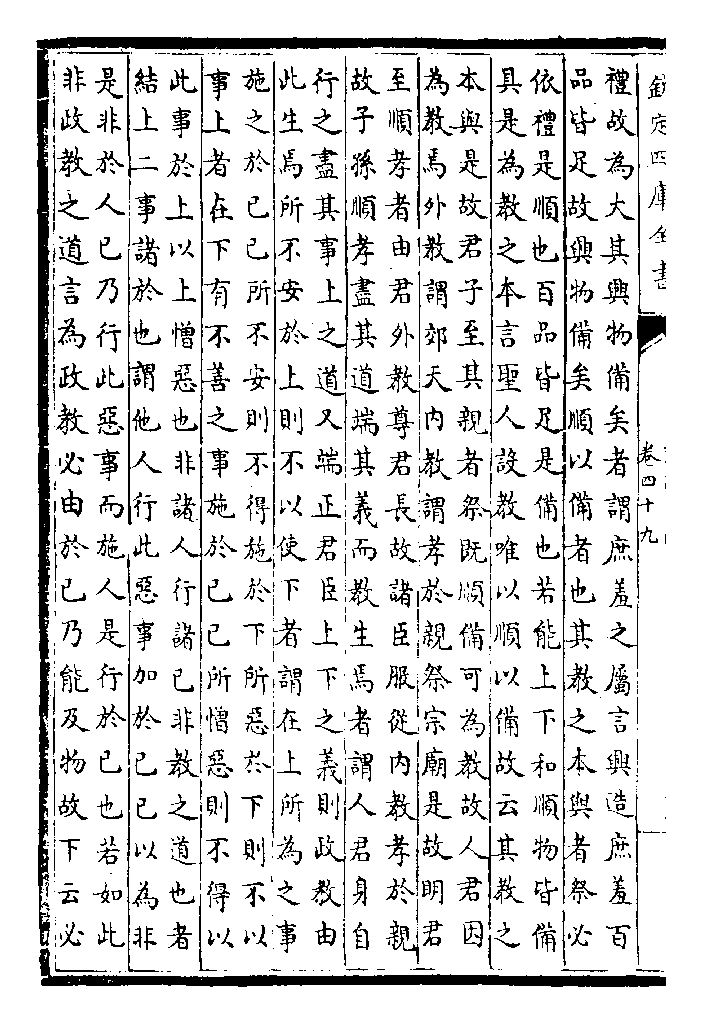 欽定四庫全書
卷四十九
禮故為大其興物備矣者謂庶羞之屬言興造庶羞百
品皆足故興物備矣順以備者也其教之本與者祭必
依禮是順也百品皆足是備也若能上下和順物皆備
具是為教之本言聖人設教唯以順以備故云其教之
本與是故君子至其親者祭既順備可為教故人君因
為教焉外教謂郊天內教謂孝於親祭宗廟是故明君
至順孝者由君外教尊君長故諸臣服從內教孝於親
故子孫順孝盡其道端其義而教生焉者謂人君身自
行之盡其事上之道又端正君臣上下之義則政教由
此生焉所不安於上則不以使下者謂在上所為之事
施之於已已所不安則不得施於下所惡於下則不以
事上者在下有不善之事施於已已所憎惡則不得以
此事於上以上憎惡也非諸人行諸已非教之道也者
結上二事諸於也謂他人行此惡事加於已已以為非
是非於人已乃行此惡事而施人是行於已也若如此
非政教之道言為政教必由於已乃能及物故下云必